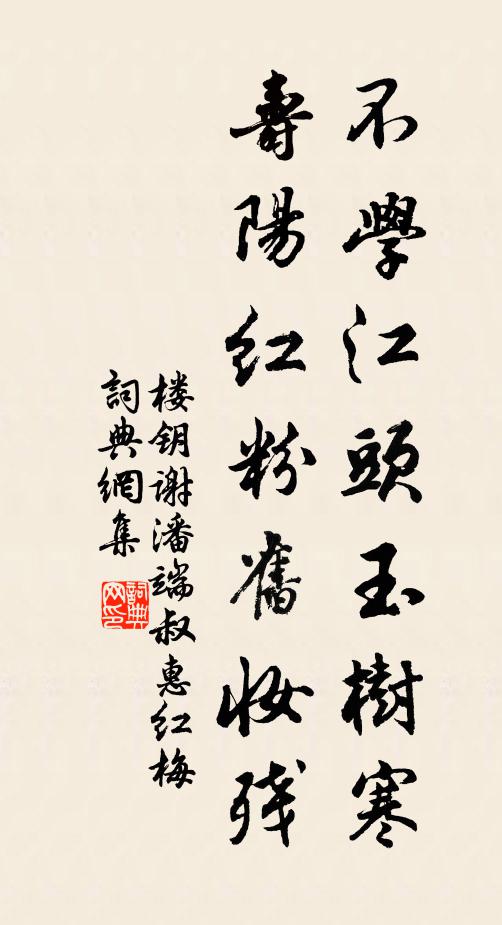 不學江頭玉樹寒
壽陽红粉舊妆残
楼钥谢潘端叔惠红梅
詞典網集
詞典网印